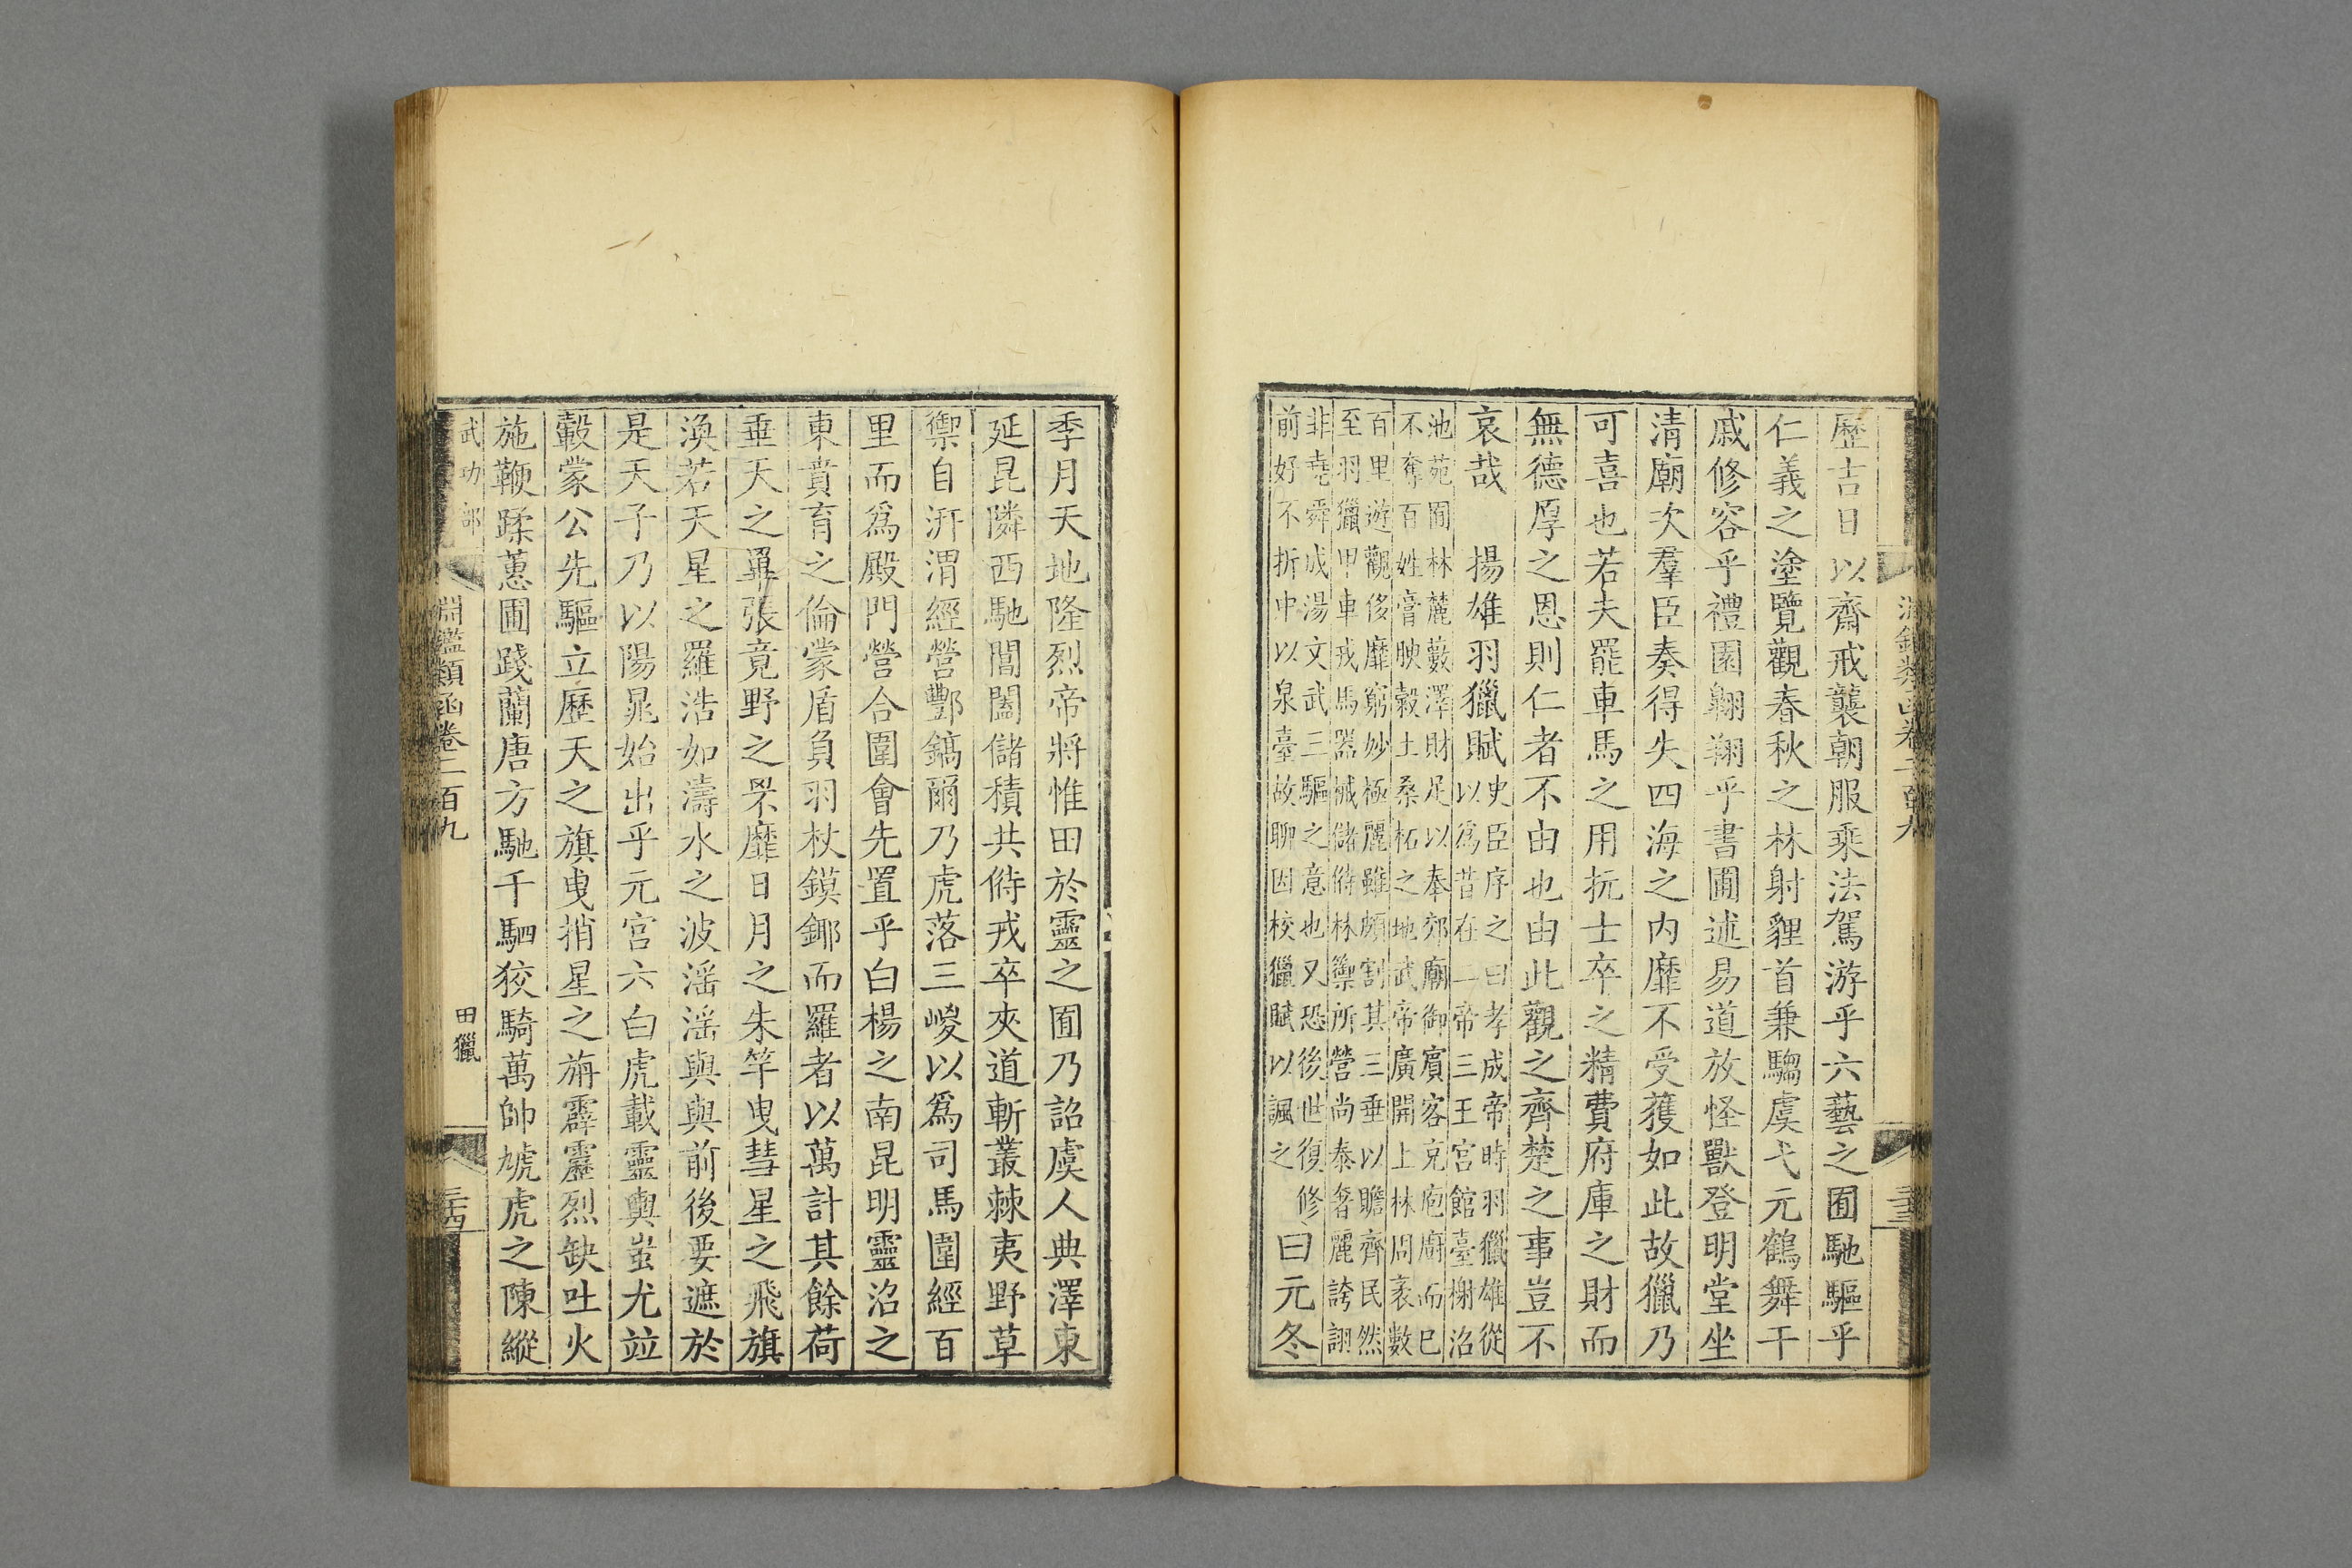 淵鑑類函卷二百九
歷吉日以齋戒襲朝服乘法駕游乎六藝之囿馳驅乎
仁義之塗覽觀春秋之林射貍首兼騶虞弋元鶴舞干
戚修容乎禮園翺翔乎書圃述易道放怪獸登明堂坐
清廟次羣臣奏得失四海之内靡不受獲如此故獵乃
可喜也若夫罷車馬之用抏士卒之精費府庫之財而
無德厚之恩則仁者不由也由此觀之齊楚之事豈不
哀哉 揚雄羽獵賦
史臣序之曰孝成帝時羽獵雄從
以爲昔在二帝三王宫館臺榭沼
池苑囿林麓藪澤財足以奉郊廟御賓客充庖廚而已
不奪百姓膏腴穀土桑柘之地武帝廣開上林周袤數
百里遊觀侈靡窮妙極麗雖頗割其三垂以贍齊民然
至羽獵甲車戎馬器械儲偫禁禦所營尚泰奢麗誇詡
非堯舜成湯文武三驅之意也又恐後世復修
前好不折中以泉臺故聊因校獵賦以諷之
曰元冬
季月天地隆烈帝將惟田於靈之囿乃詔虞人典澤東
延昆隣西馳閶闔儲積共偫戎卒夾道斬叢棘夷野草
禦自汧渭經營酆鎬爾乃虎落三嵕以爲司馬圍經百
里而爲殿門營合圍會先置乎白楊之南昆明靈沼之
東賁育之倫蒙盾負羽杖鏌鋣而羅者以萬計其餘荷
垂天之罼張竟野之罘靡日月之朱竿曳彗星之飛旗
渙若天星之羅浩如濤水之波淫淫與與前後要遮於
是天子乃以陽晁始出乎元宫六白虎載靈輿蚩尤竝
轂蒙公先驅立歷天之旗曳捎星之旃霹靂烈缺吐火
施鞭蹂蕙圃踐蘭唐方馳千駟狡騎萬帥虓虎之陳縱
武功部
淵鑑類函卷二百九
田獵